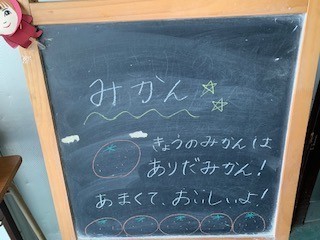 みかん
きょうのみかんは
ありだみかん!
あまくて、おいしいよ!